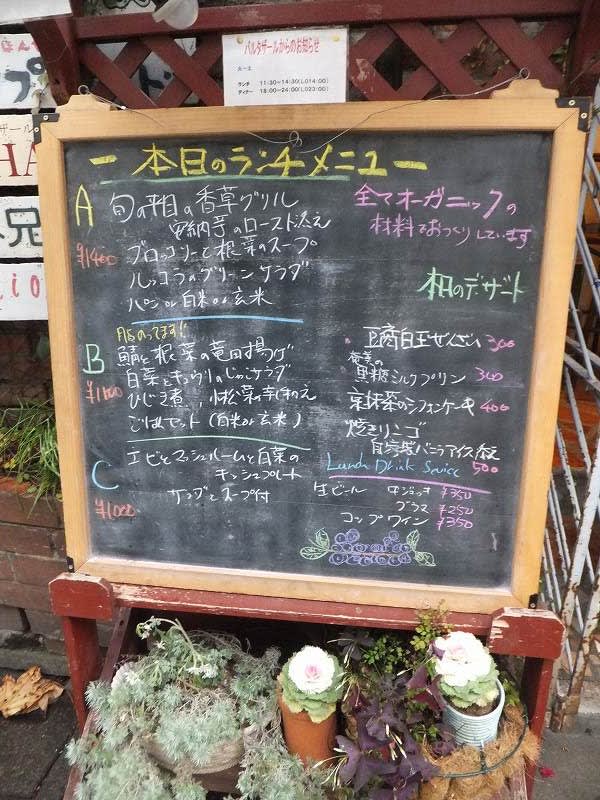 バルタザールからのお知らせ
ランチ 11:30~14:30(LO14:00)
ディナー 18:00~24:00(LO23:00)
ー本日のランチメニューー
A 旬の平目の香草グリル
安納芋のロースト添え
¥1400 ブロッコリーと根菜のスープ
ルッコラのグリーンサラダ
パン or 白米 or 玄米
全てオーガニックの
材料でおつくりしています
本日のデザート
脂のってます!
B 鯖と根菜の竜田揚げ
白菜とキュウリのじゃこサラダ
ひじき煮、小松菜の辛子和え
ごはんセット(白米or玄米)
C エビとマッシュルームと白菜の
キッシュプレート
¥1000 サラダとスープ付
豆腐白玉ぜんざい 300
奄美の
黒糖ミルクプリン 300
京抹茶のシフォンケーキ 400
焼きリンゴ
自家製バニラアイス添え
500
Lunch Drink Service
生ビール 中ジョッキ ¥350
グラス ¥250
コップワイン ¥350